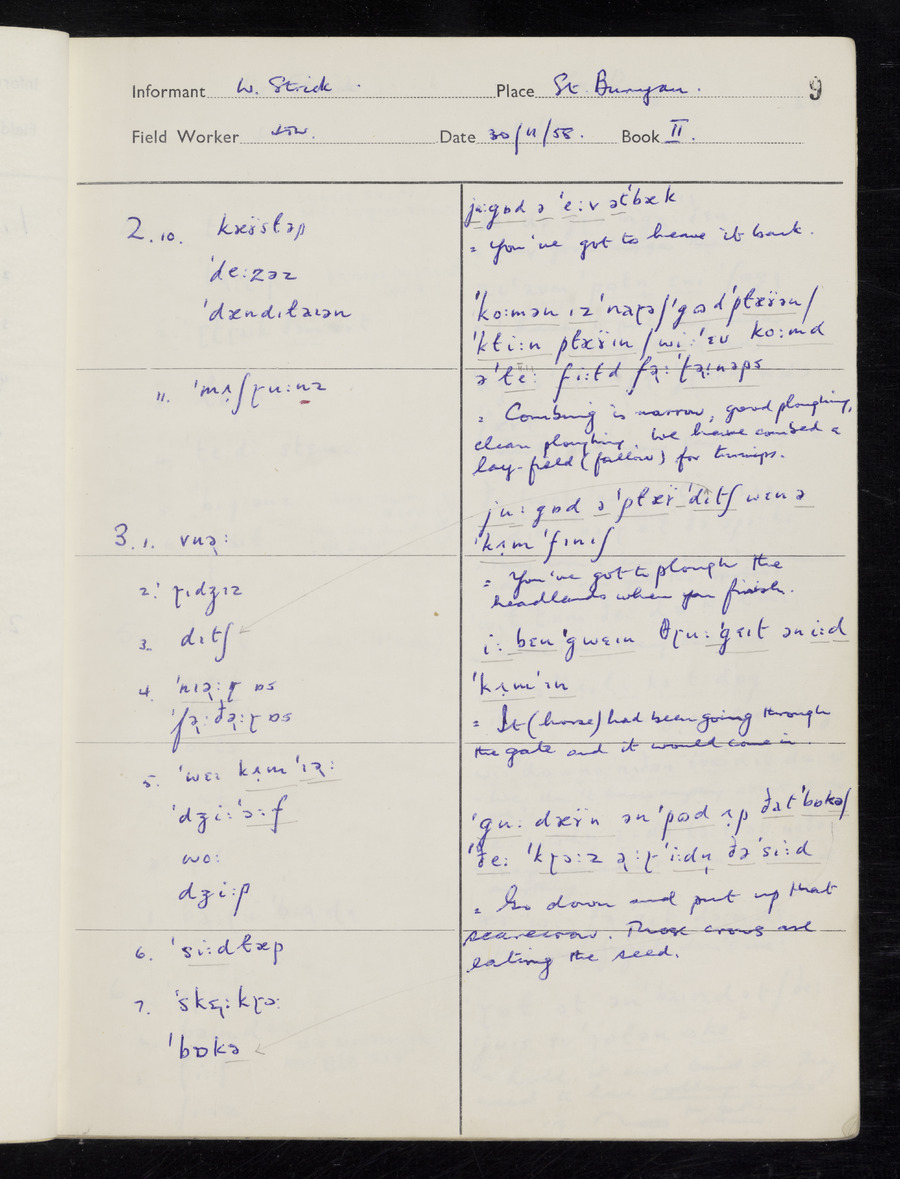 Informant W. Strick. Place St Buryan. 9
Field Worker Date 30/11/58. Book II.
2.10. kæÿstəp
ˈdeːzəz
ˈdændɪtaɪən
11. ˈmʌ̣ʃɽuːnz
3.1. vʊəɻː
2. ɽɪdʒɪz
3. dɪtʃ
4. ˈnɪəɻːɽ ɒs
ˈfəɻːðəɻːɽ ɒs
5. ˈwɛɪ kʌ̣m ˈɪəɻː
ˈdʒiːˈɔːf
woː
dʒiːp
6. ˈsiːdɫæp
7. ˈskɛɻːkɽɔː
ˈbɒkə
juːgɒd ə ˈeːv ətˈbæk
= You've got to heave it back.
ˈkoːmən ɪz ˈnaɽə/ˈgɒd ˈpɫæÿən/
ˈkɫiːn pɫæÿɪn/wiːˈɛv koːmd
ə ˈɫeː fiːɫd fəɻːˈtəɻːnəps
= Combing is narrow, good ploughing,
clean ploughing. We have combed a
lay-field (fallow) for turnips.
juː gɒd ə ˈpɫæÿ ˈdɪtʃ wɛn ə
ˈkʌ̣m ˈfɪnɪʃ
= You've got to plough the
headlands when you finish.
iː bɛn ˈgwɛɪn θɽuː ˈgɛɪt ən iːd
ˈkʌ̣m ˈɪn
= It (horse) had been going through
the gate and it would come in.
ˈguː dæÿn ən ˈpɒd ʌ̣p ðat ˈbɒkə/
ˈðeː ˈkɽɔːz əɻːɽ ˈiːdn̩ ðə ˈsiːd
= Go down and put up that
scarecrow. Those crows are
eating the seed.